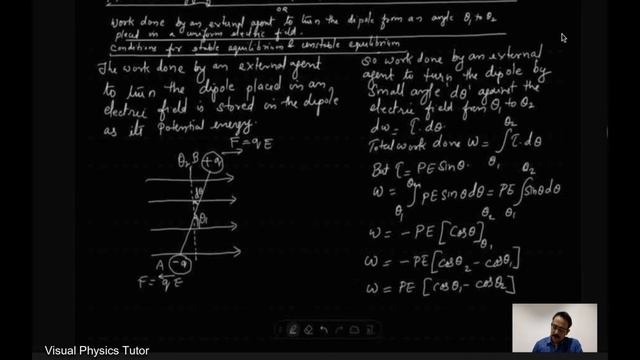 OR
Work done by an external agent to turn the dipole from an angle θ1 to θ2
placed in a uniform electric field.
Conditions for stable equilibrium & unstable equilibrium
The work done by an external agent
to turn the dipole placed in an
electric field is stored in the dipole
as its potential energy.
F = qE
θ2 B +q
dθ
θ1
A -q
F = qE
So work done by an external
agent to turn the dipole by
small angle 'dθ' against the
electric field from θ1 to θ2
dw = τ.dθ
Total work done W = ∫θ1θ2 τ.dθ
But τ = PE Sinθ.
W = ∫θ1θ2 PE Sinθ dθ = PE ∫θ1θ2 Sinθ dθ
W = - PE [Cosθ]θ1θ2
W = - PE [Cosθ2 - Cosθ1]
W = PE [Cosθ1 - Cosθ2]
Visual Physics Tutor